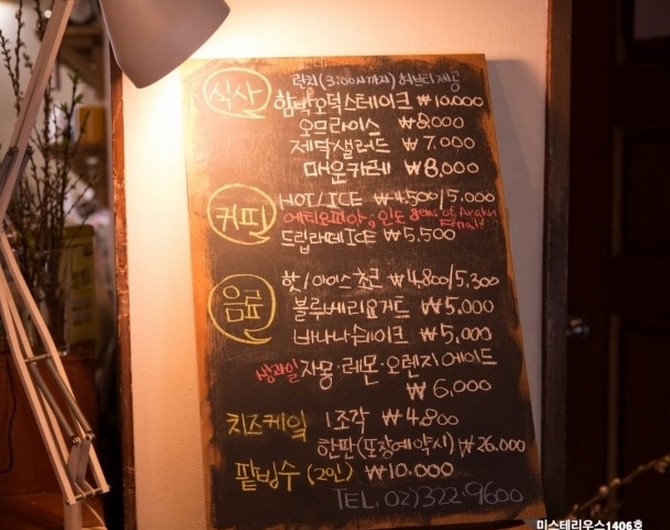 식사
런치(3:00시까지) 허브티 제공
함박오덕스테이크 ₩10.000
오므라이스 ₩8.000
제닥샐러드 ₩7,000
매운카레 ₩8,000
커피
HOT/ICE ₩4.500/5.000
에티오피아, 인도 gems of Araku
드립라떼ICE ₩5.500
음료
핫/아이스초코 ₩4,800/5,300
블루베리요거트 ₩5,000
바나나쉐이크 ₩5,000
생과일 자몽·레몬·오렌지에이드
₩6,000
치즈케잌 1조각 ₩4,800
한판(포장예약시) ₩26.000
팥빙수 (2인) ₩10.000
TEL, 02)322-9600
미스테리우스1406호